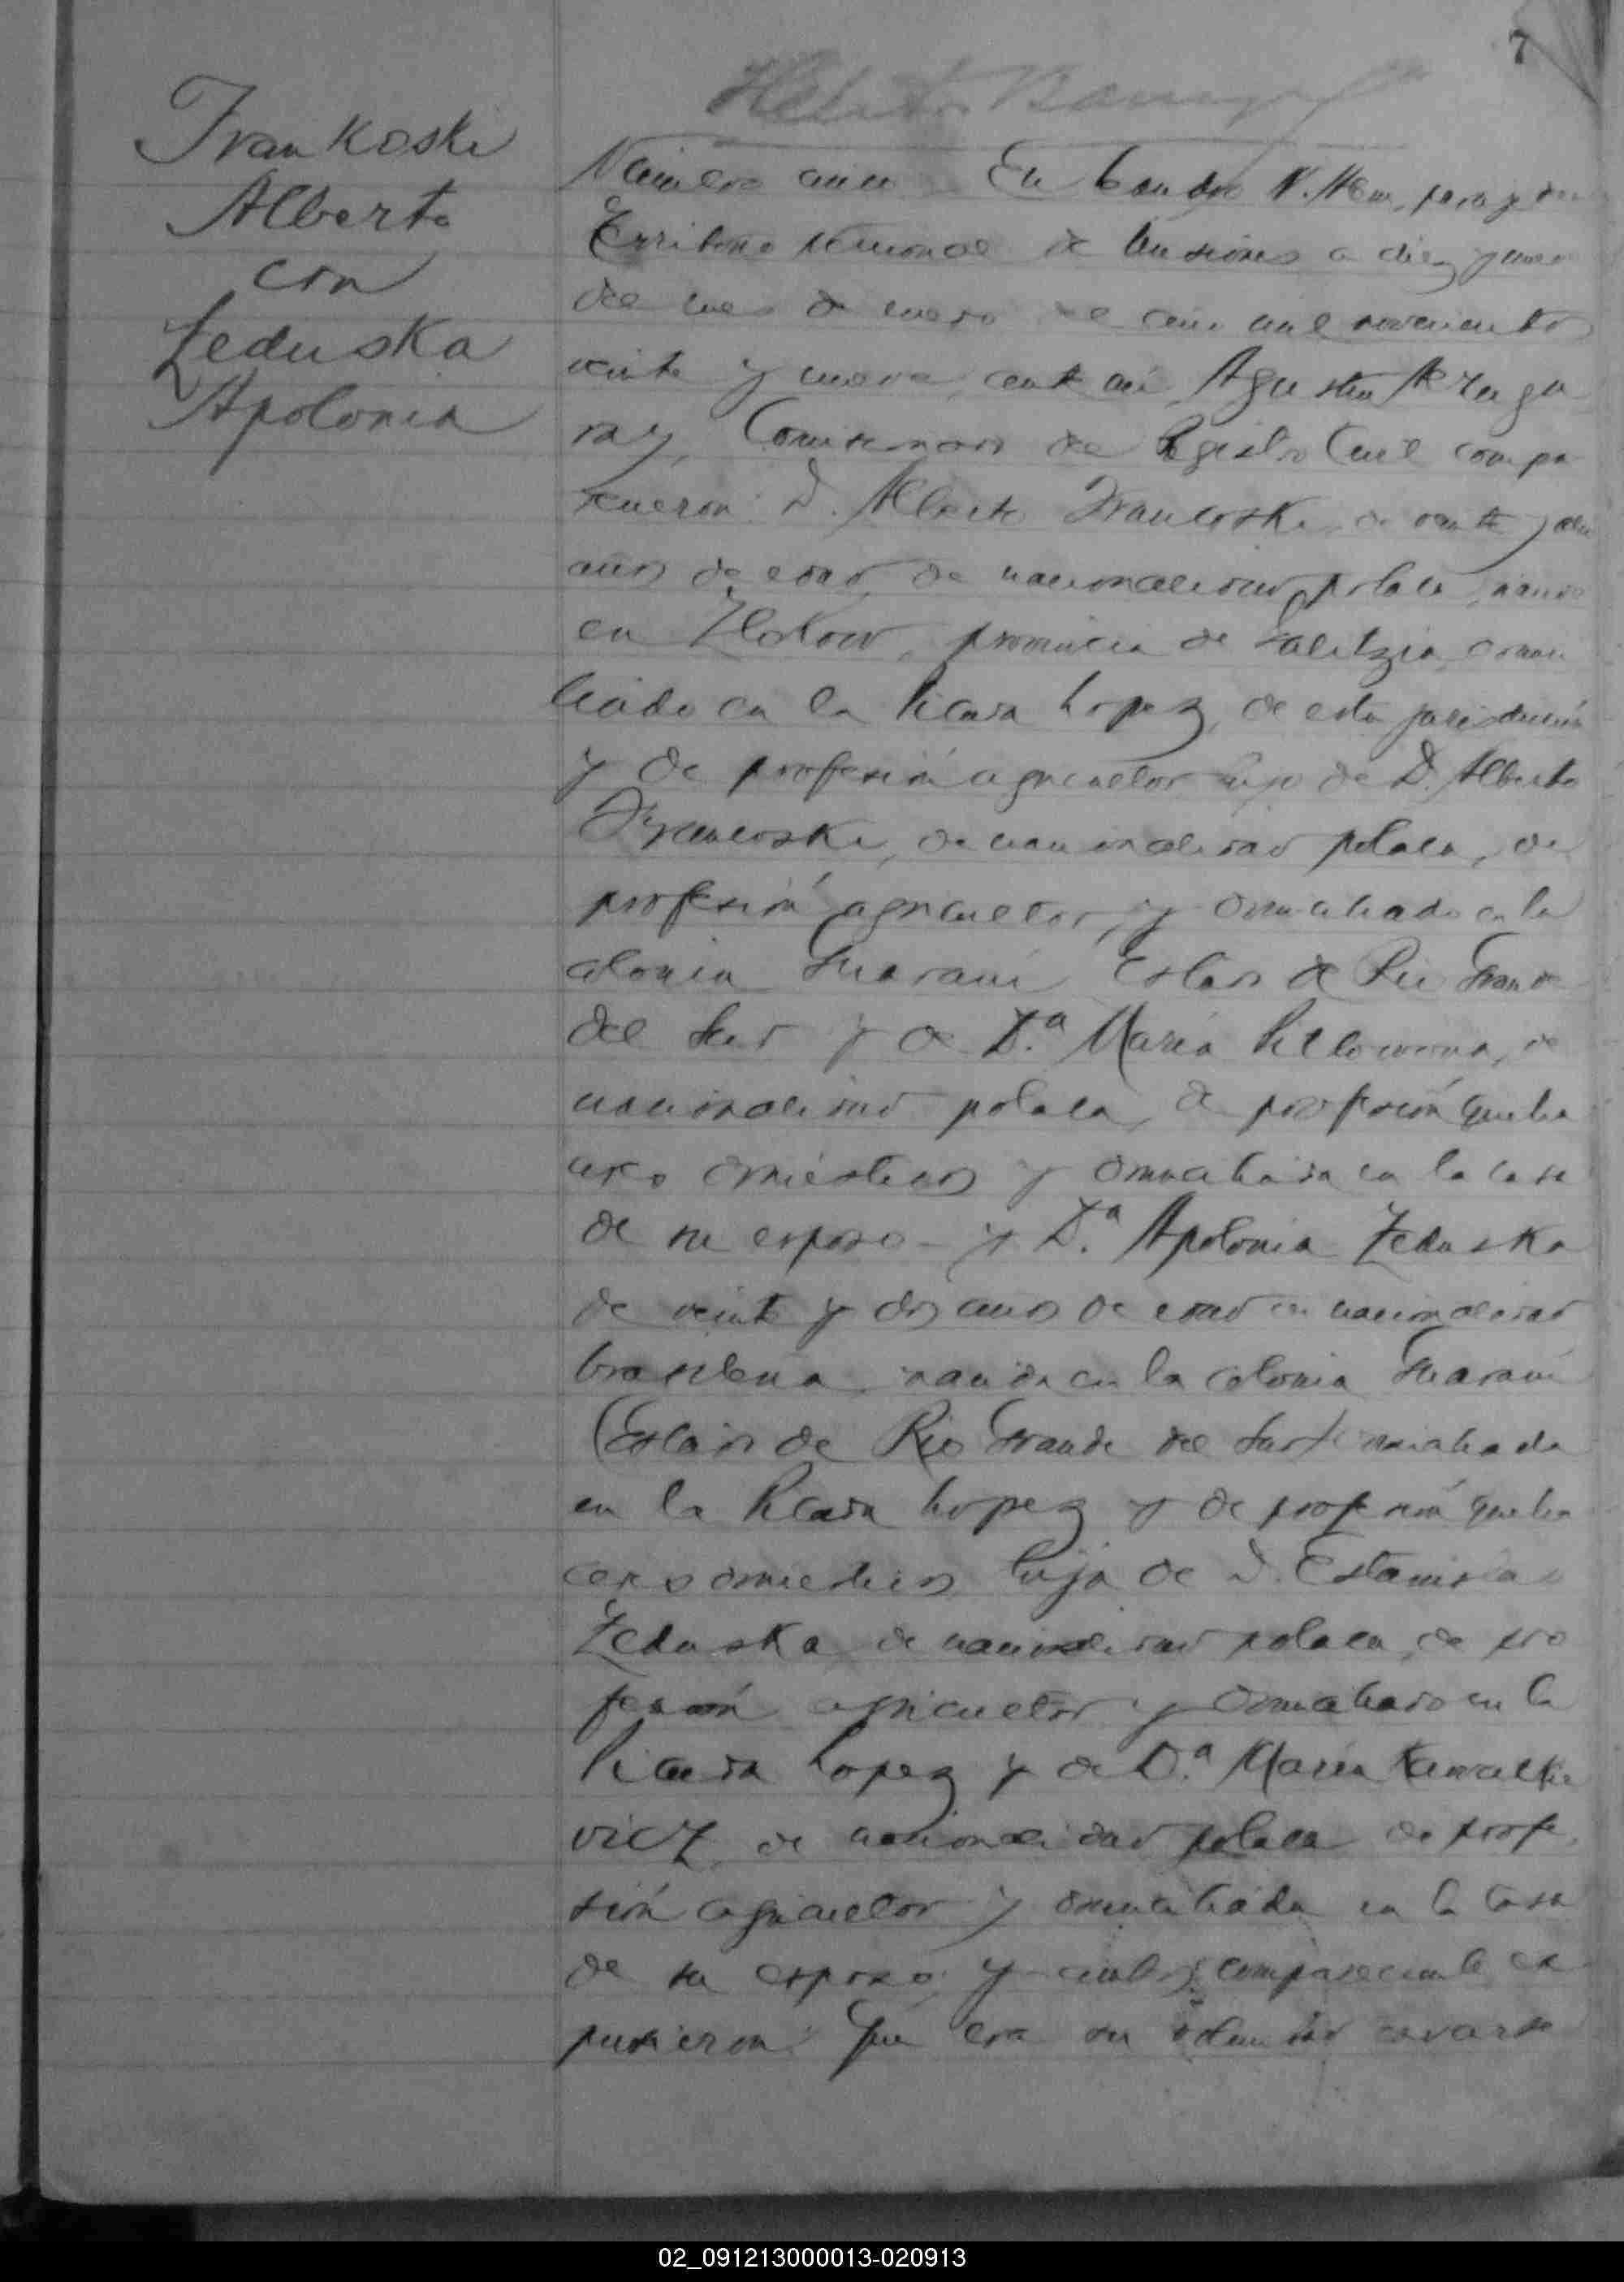 7
Frankoski
Alberto
con
Zeduska
Apolonia
Número cinco En Leandro N. Alem,
Territorio Nacional de Misiones a diez y nueve
del mes de enero del año mil novecientos
veinte y nueve, ante mí Agustín
Comisario de Registro Civil compa
recieron: D. Alberto Francoski, de veinte y
años de edad, de nacionalidad polaca, nacido
en Zlotow, provincia de Galitzia, domi
ciliado en la Picada Lopez, de esta jurisdicción
y de profesión agricultor hijo de D. Alberto
Francoski, de nacionalidad polaca, de
profesión agricultor, y domiciliado en la
colonia Guaraní Estado de Rio Grande
del Sur y de D.ª María de
nacionalidad polaca, de profesión queha
ceres domésticos y domiciliada en la casa
de su esposo - y D.ª Apolonia Zeduska
de veinte y dos años de edad de nacionalidad
brasileña nacida en la colonia Guaraní
(Estado de Rio Grande del Sur) domiciliada
en la Picada Lopez y de profesión queha
ceres domesticos, hija de D. Estanislao
Zeduska de nacionalidad polaca, de pro
fesión agricultor y domiciliado en la
Picada Lopez y de D.ª María
vicz, de nacionalidad polaca de profe
sión agricultor y domiciliada en la casa
de su esposo y ambos comparecientes ex
pusieron: Que era su voluntad casarse
02_091213000013-020913